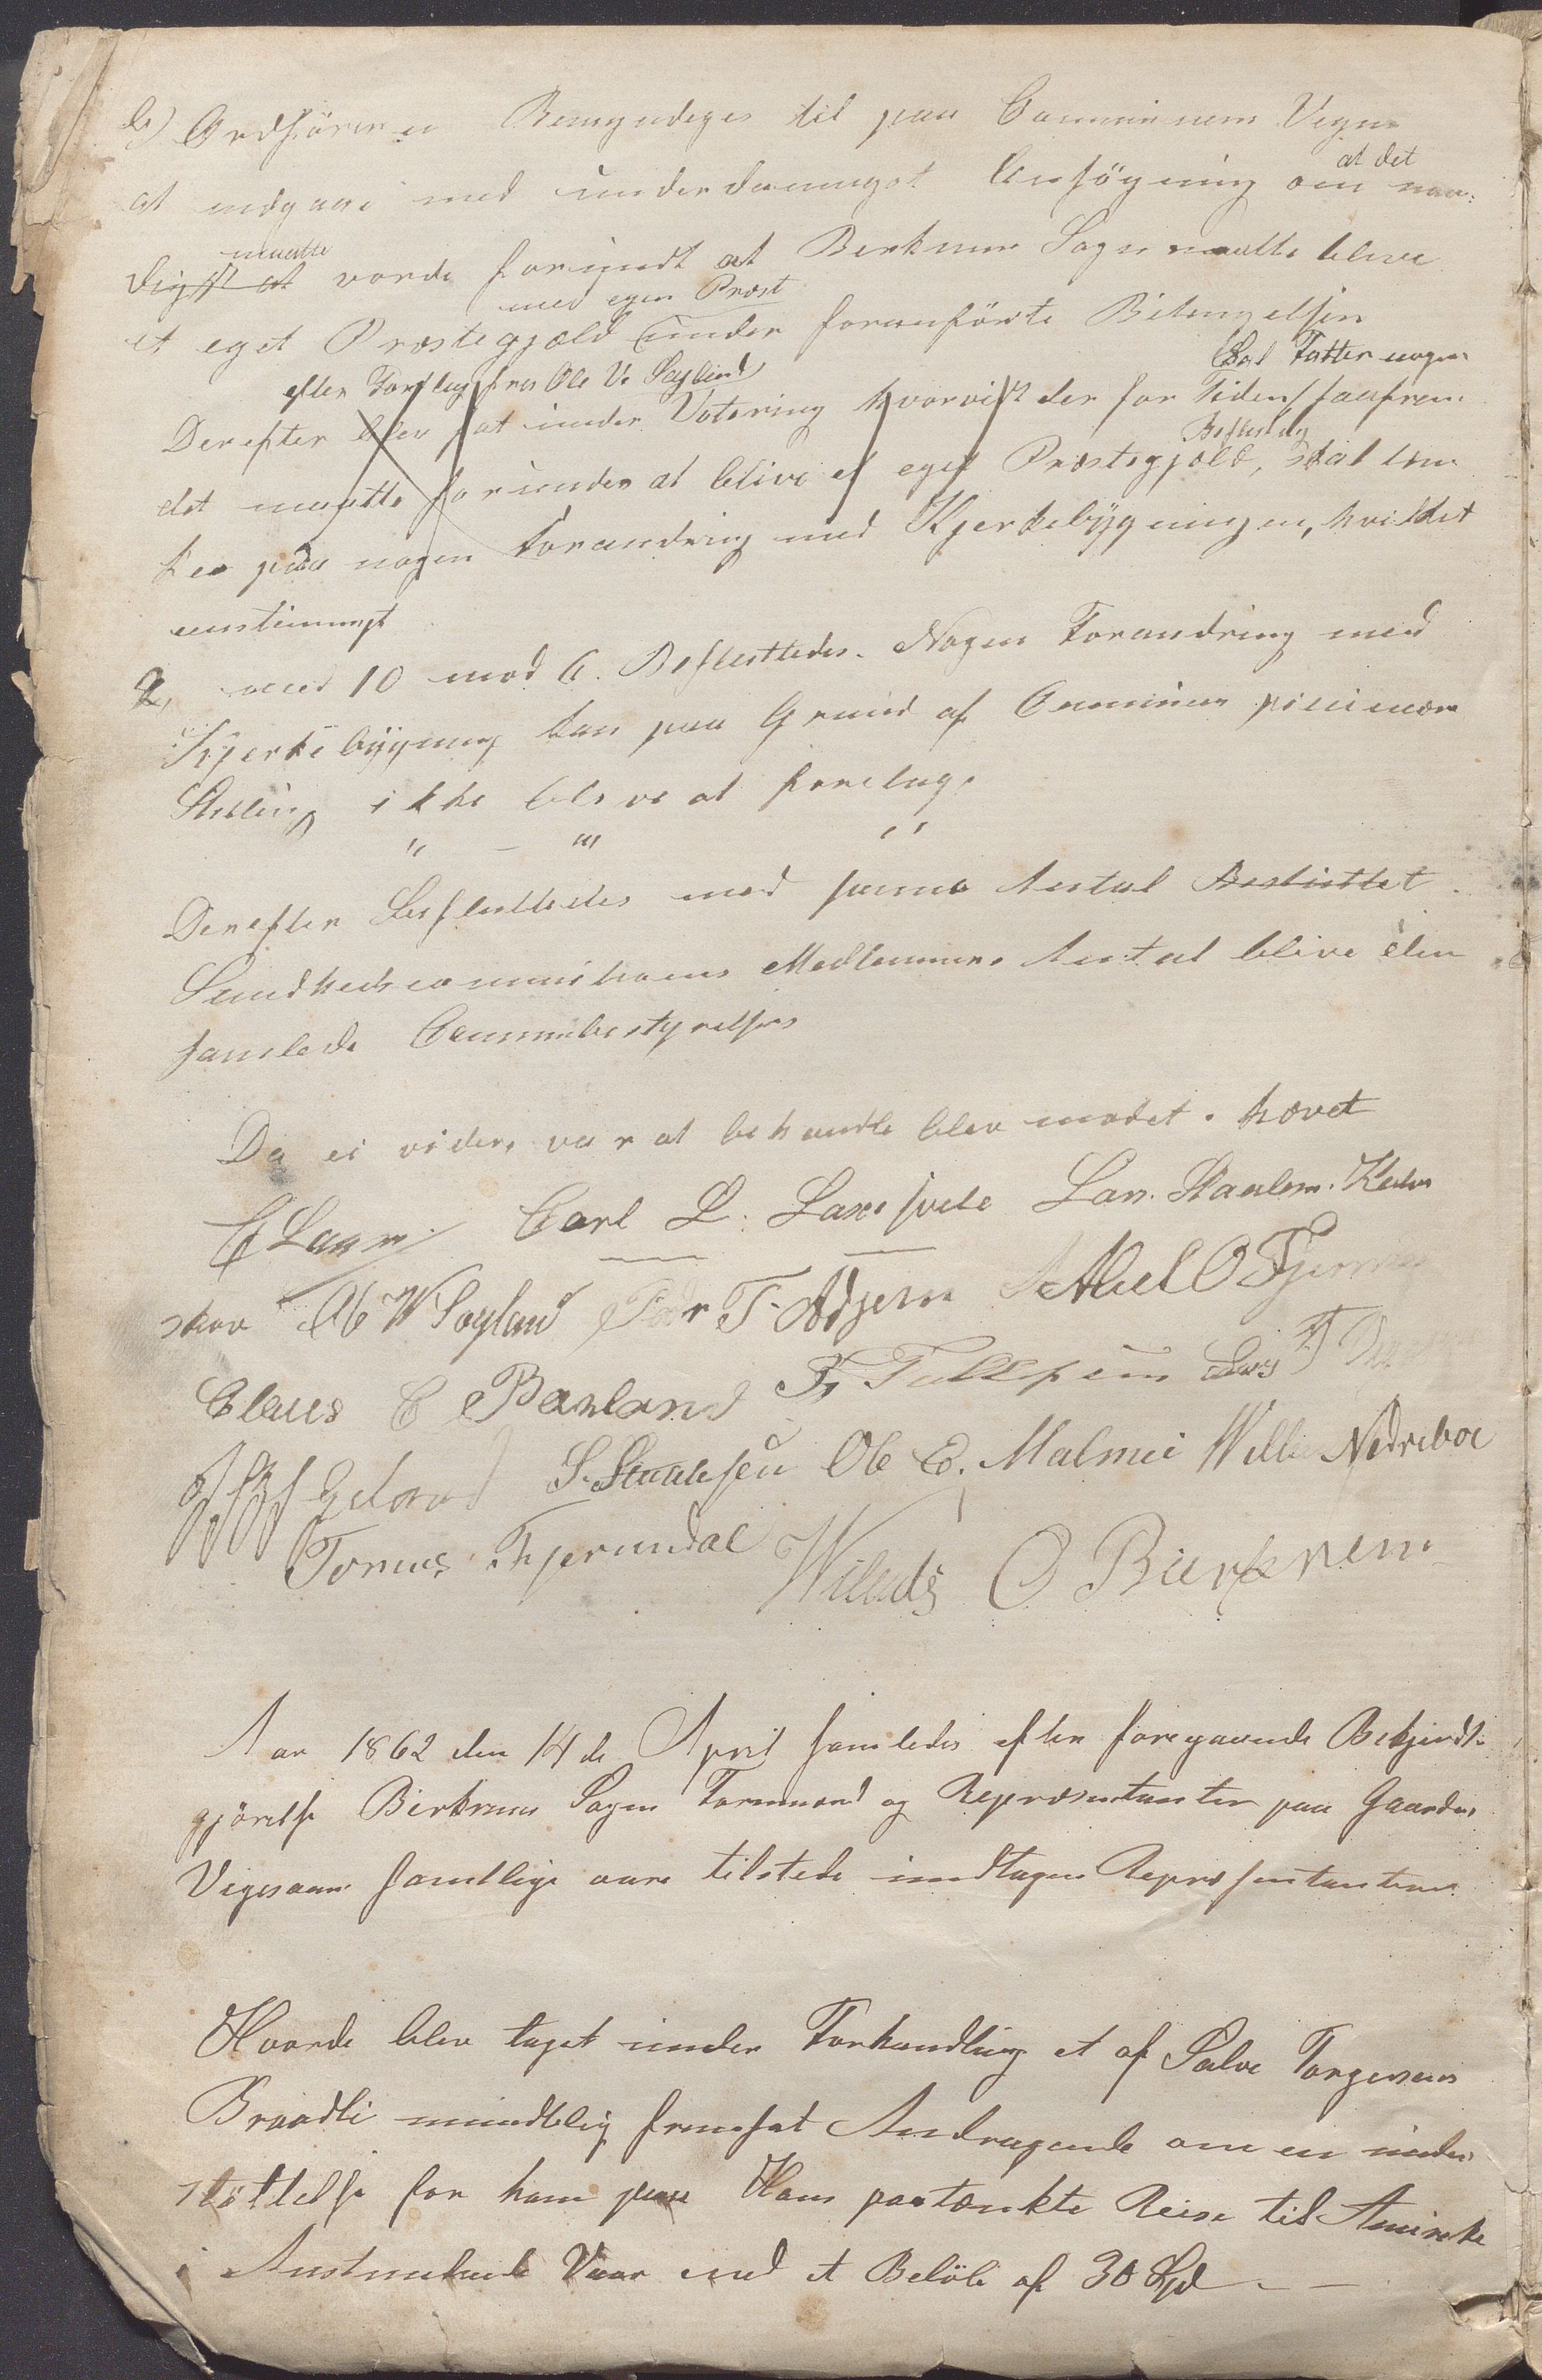 b) Ordføreren Bemyndeges til paa Communens Vegne
at det
at indgaae med underdanigst Ansøgning om naa-
maatte
digst at vorde forundt at Berkrem Sogn maatte blive
med egen Præst
et eget Præstegjæld under foranførte Betingelser
efter Forslag fra Ole V. Søyland Sal fatter nogen
Derefter blev sat under Votering hvorvidt der for Tiden saafrem
Beslutning
det maatte forundes at blive et eget Præstegjæld, skal tæn
kes paa nogen Forandring med Kjerkebygningen, hvilket
eenstemmigt
2, med 10 mod 6. Besluttedes. Nogen Forandring med
Kjerkebygning kan paa Grund af Communens
Stilling ikke blive at foretage
" - " "
Derefter Besluttedes med samme Antal Besluttet.
Sundhedscommisionens Medlemmers Antal blive den
samlede Communebestyrelses
Da ei videre var at behandle blev mødet hævet
Carl L. Laxesvele Lars Staalesen
skov Ole W Søyland Peder T. Ådjem Abel O
Claus C Berland
S. Staalesen Ole E. Malmei Nedrebøe
Tønnes Tjerundal O Bierkrem
Aar 1862 den 14de April samledes efter foregaaende Bekjendt-
gjørelse Berkrem Sogns Formænd og Repræsentanter paa Gaarden
Vigesaa samtlige vare tilstede indtagen Repræsentanterne
Hvorda blev taget under Forhandling et af Salve Torgersens
Braadli mundtlig fremsat Andragende om en under
støttelse for ham paa Hans paatænkte Reise til Amireka
i Anstundende Vaar med et Beløb af 30 Spd - -